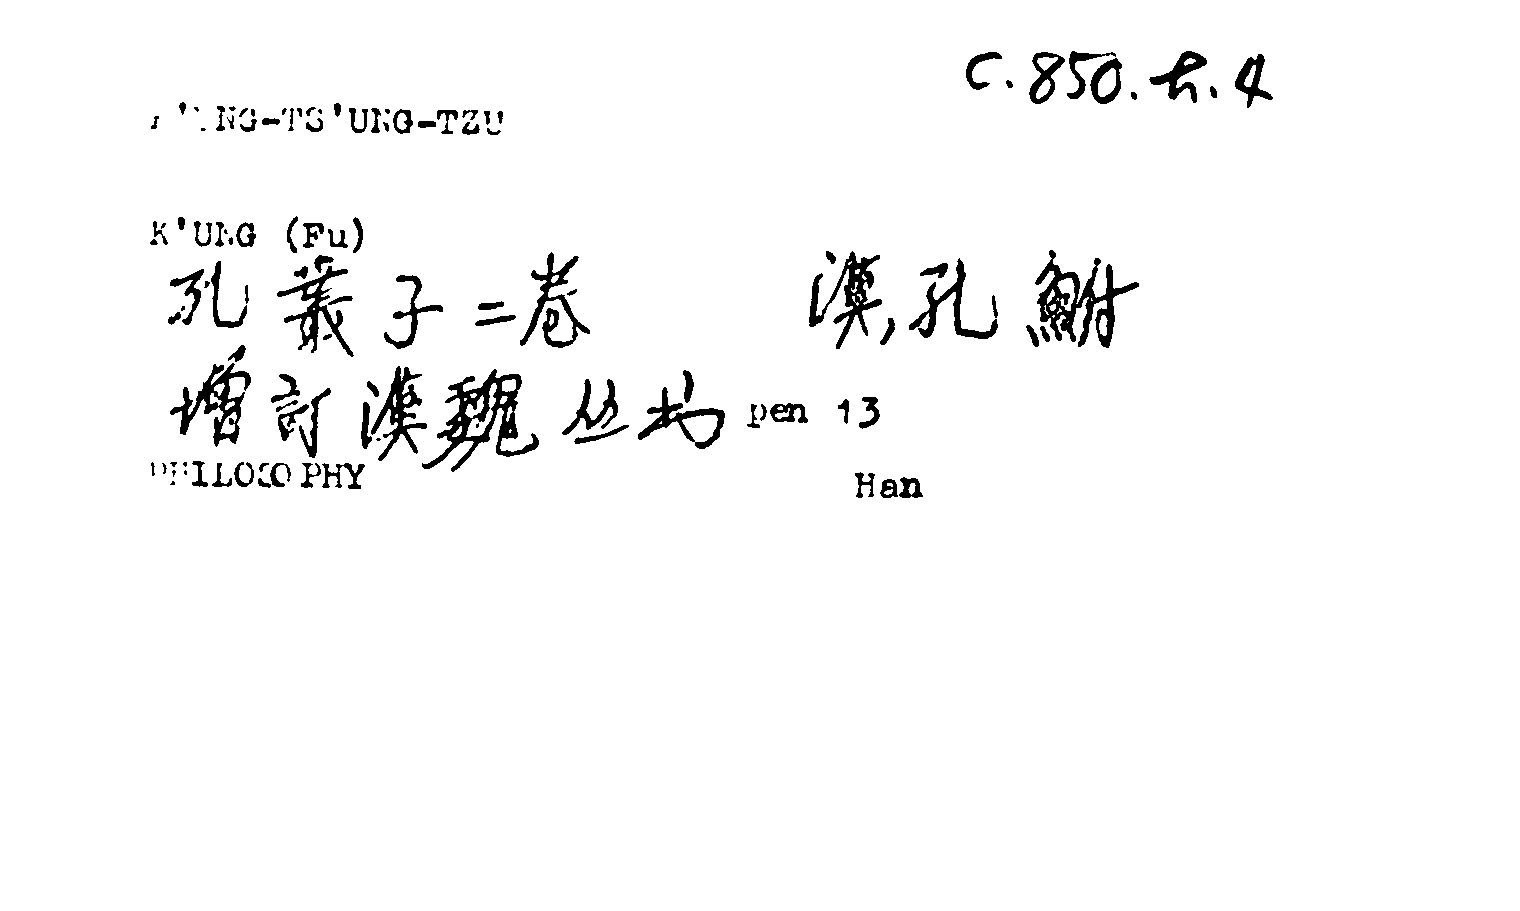 C.850. .4
K'UNG-TS'UNG-TZU
K'UNG (Fu)
孔叢子二卷 漢,孔鮒
增訂漢魏丛书 pen 13
PHILOSOPHY Han